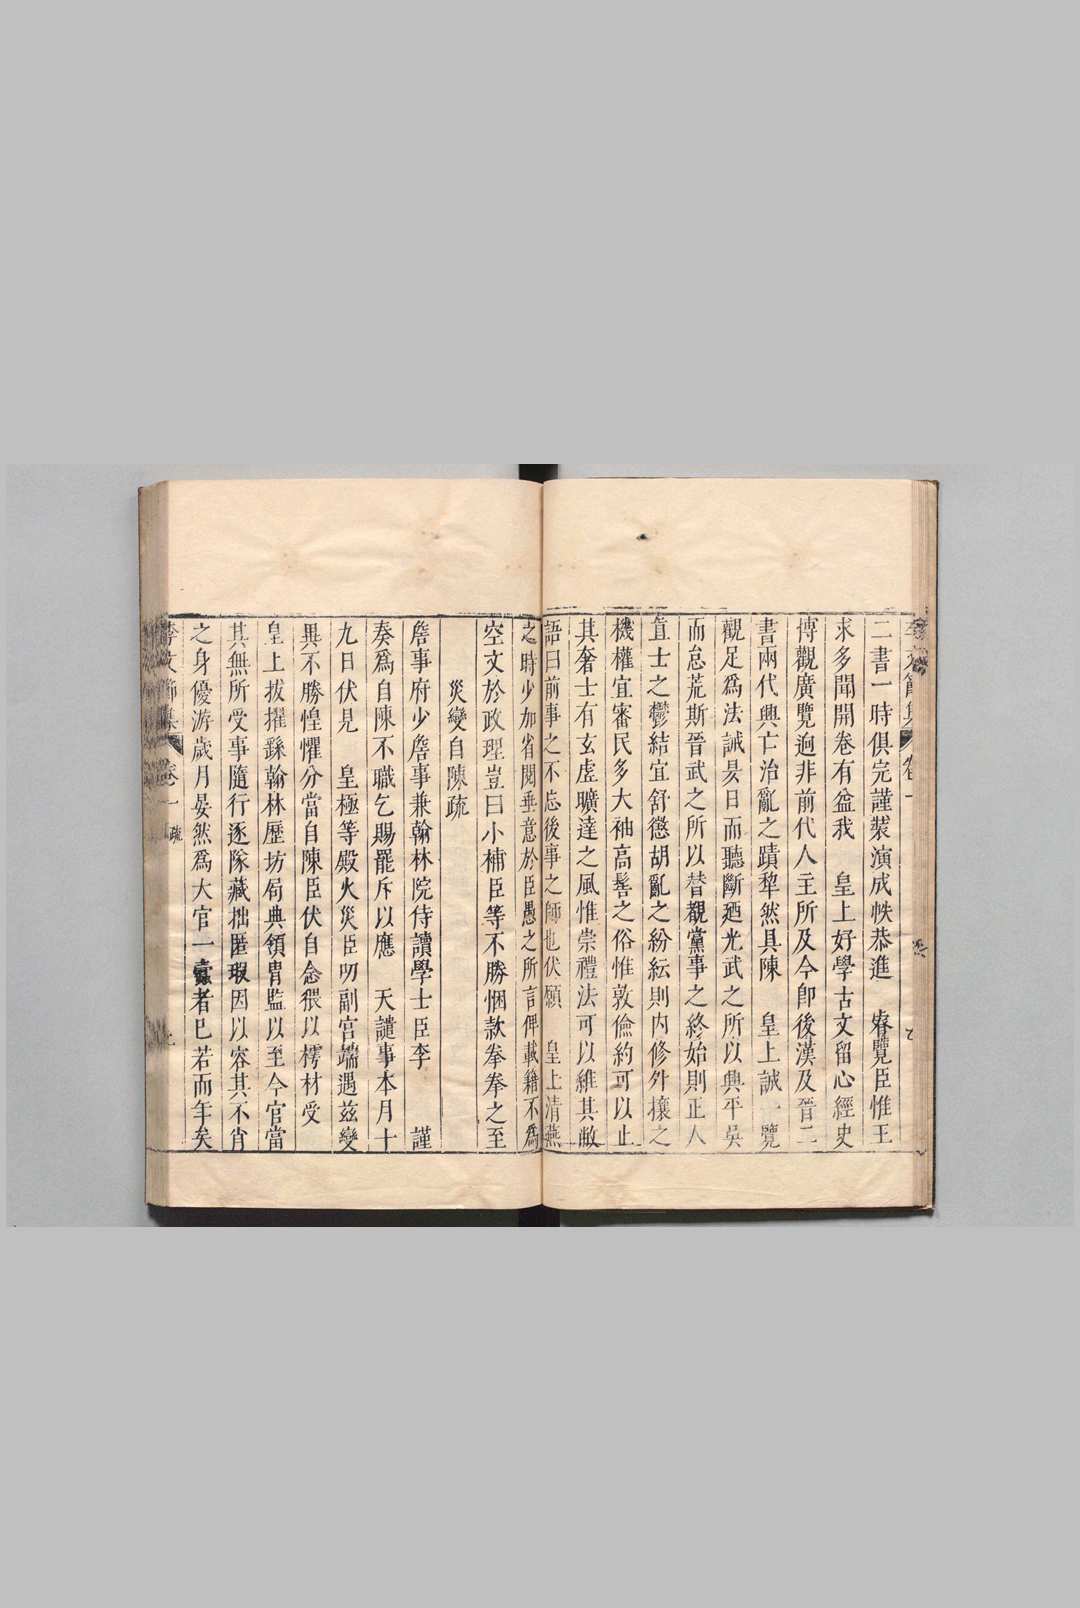 二書一時俱完謹裝演成帙恭進　睿覽臣惟王
求多聞開卷有益我　皇上好學古文留心經史
博觀廣覽逈非前代人主所及今卽後漢及晉二
書兩代興亡治亂之蹟犂然具陳　皇上試一覽
觀足為法誡晏日而聽斷廼光武之所以興平吳
而怠荒斯晉武之所以替觀黨事之終始則正人
直士之鬱結宜舒懲胡亂之紛紜則内修外攘之
機權宜審民多大袖高髻之俗惟敦儉約可以止
其奢士有玄虛曠達之風惟崇禮法可以維其敝
語曰前事之不忘後事之師也伏願　皇上清燕
之時少加省閱垂意於臣愚之所言俾載籍不為
空文於政理豈曰小補臣等不勝悃款拳拳之至
災變自陳疏
詹事府少詹事兼翰林院侍讀學士臣李　　謹
奏為自陳不職乞賜罷斥以應　天譴事本月十
九日伏見　皇極等殿火災臣叨副宮端遇茲變
異不勝惶懼分當自陳臣伏自念猥以樗材受
皇上拔擢繇翰林歷坊局典領胄監以至今官當
其無所受事隨行逐隊藏拙匿瑕因以容其不肖
之身優游歲月晏然為大官一蠹者已若而年矣
李文節集　卷一　疏